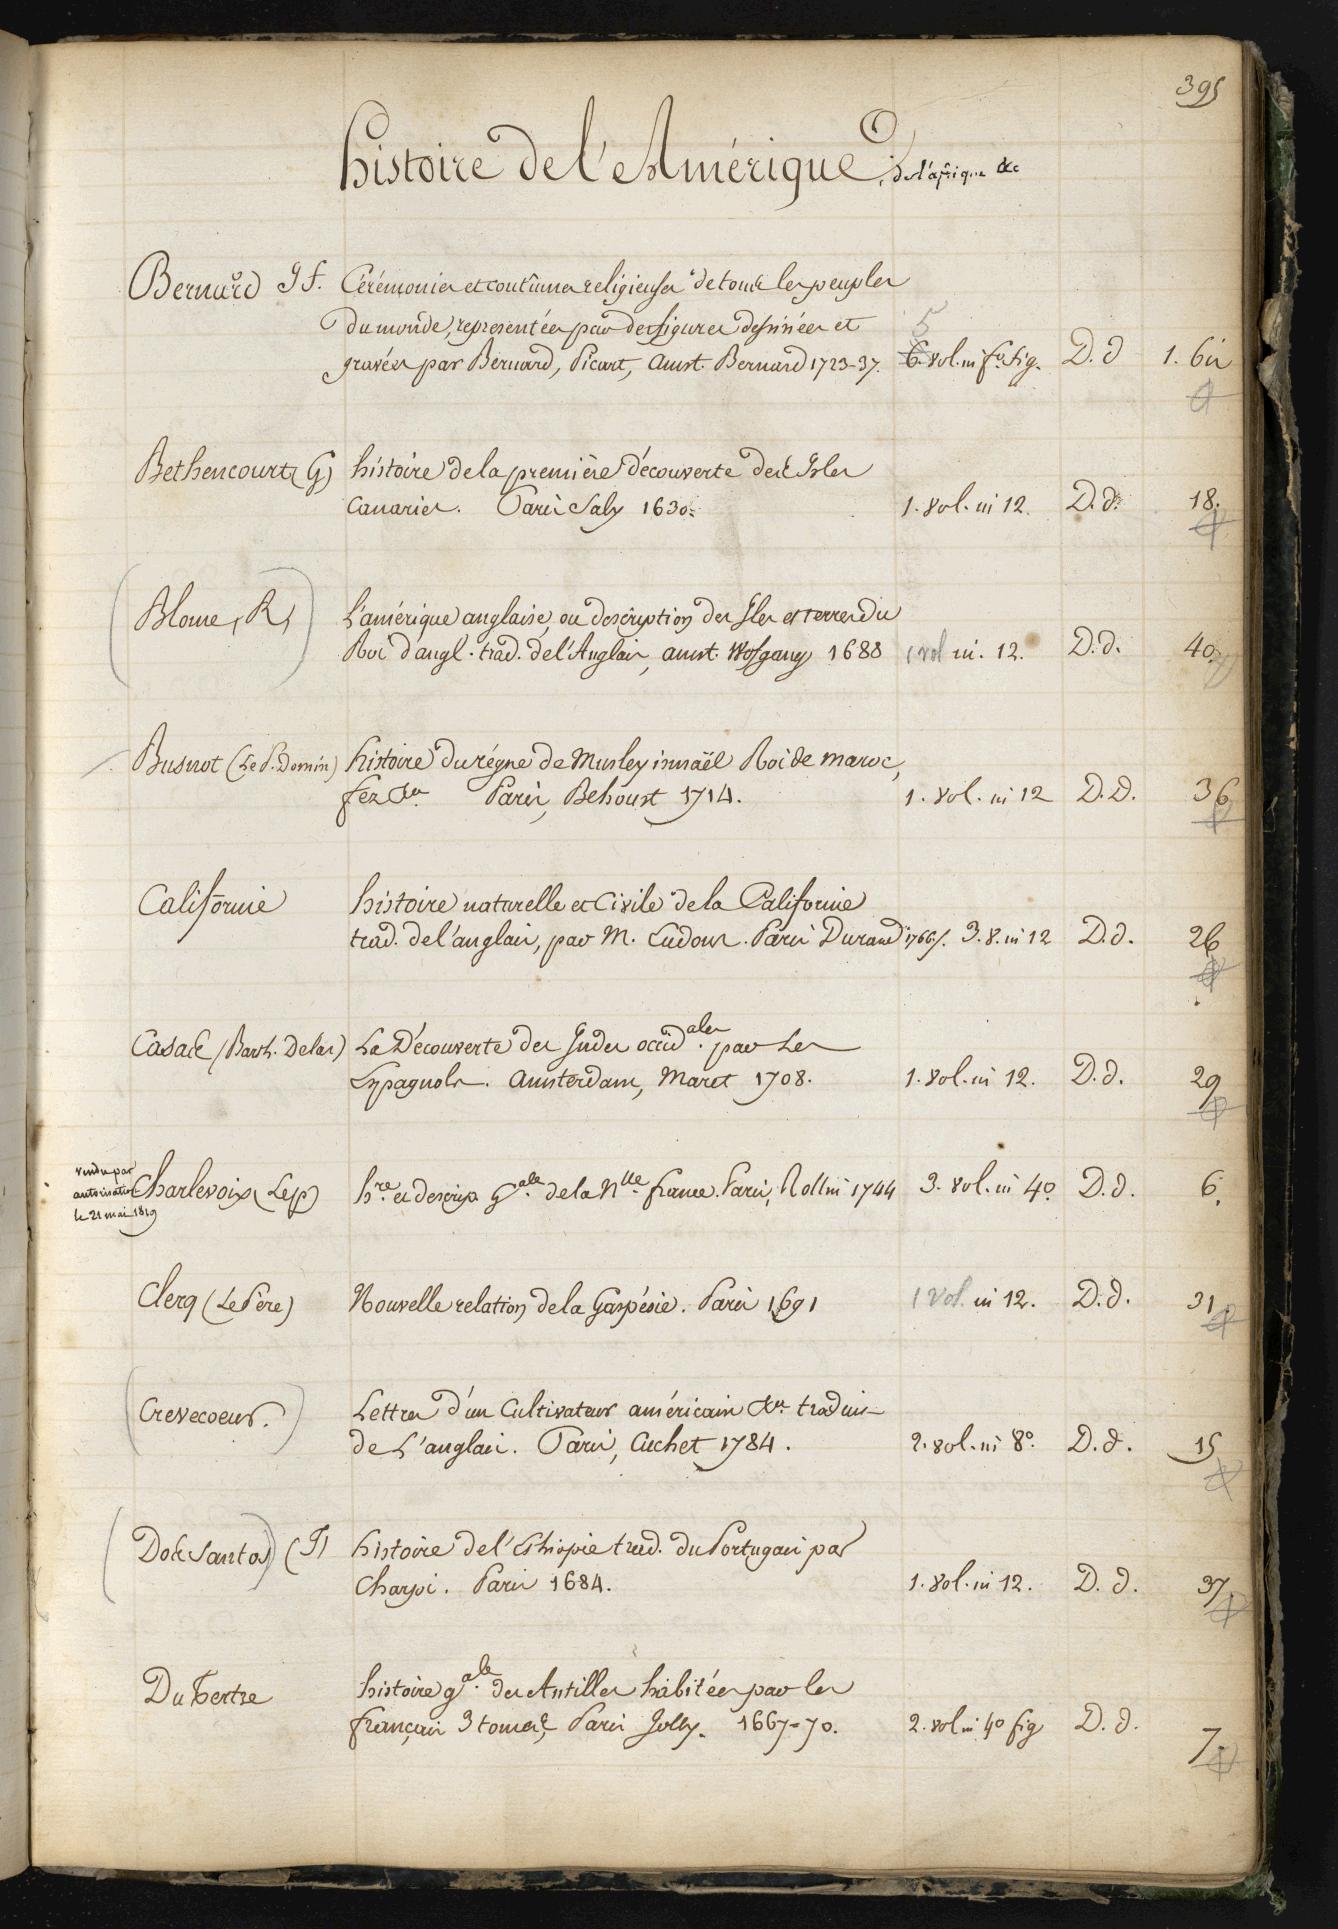 395
histoire de l'Amérique, de l'afrique &c
Bernard J f. Cérémonies et coutumes religieuses de tous les peuples
du monde, representées par des figures dessinées et 5
gravées par Bernard, Picart, Amst. Bernard 1723-37. 6. vol. in f.o fig. D. d 1. bis
Bethencourt (G) histoire de la première découverte des Isles
Canaries. Paris Saly 1630. 1. vol. in 12. D. d. 18.
Blome, R, L'amérique anglaise, ou description des Iles et terres du
Roi d'angl. trad. de l'Anglais, amst. Wofgang 1688 1 vol in. 12. D. d. 40.
Busnot (Le P. Domin) histoire du régne de Musley ismaël Roi de maroc,
fez &a Paris, Behoust 1714. 1. vol. in 12 D. D. 36
Californie histoire naturelle et Civile de la Californie
trad. de l'anglais, par M. Eudous. Paris Durand 1766/. 3. v. in 12 D. d. 26
Casas (Barth. Delas) La Découverte des Indes occid.ales par Les
Espagnols. Amsterdam, Maret 1708. 1. vol. in 12. D. d. 29
vendu par
autorisation
le 21 mai 1819
Charlevoix (Le p) h.re et descrip g.ale de la N.lle france. Paris, Rollin 1744 3. vol. in 4o. D. d. 6.
Clerq (Le Père) Nouvelle relation de la Gaspésie. Paris 1691 1 Vol. in 12. D. d. 31.
Crevecoeur. Lettres d'un Cultivateur américain &a. traduis
de L'anglais. Paris, Cuchet 1784. 2. vol. in 8o. D. d. 15
Dos Santos (J) histoire de l'Ethiopie trad. du Portugais par
Charpi. Paris 1684. 1. vol. in 12. D. d. 37.
Du tertre histoire g.ale des Antilles habitées par les
français 3 tomes, Paris Jolly. 1667-70. 2. vol in 4o fig D. d. 7.